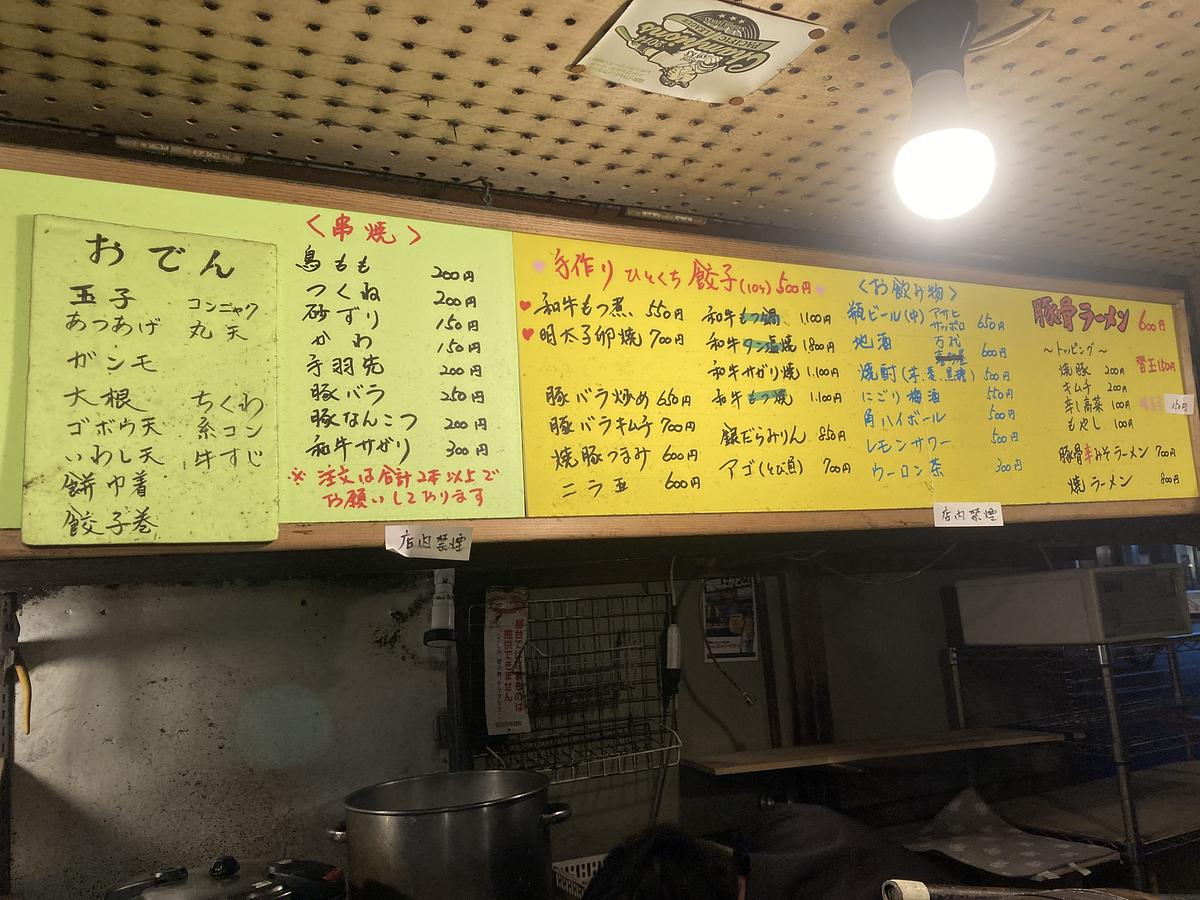 おでん
玉子 コンニャク
あつあげ 丸天
ガンモ
大根 ちくわ
ゴボウ天 糸コン
いわし天 牛すじ
餅巾着
餃子巻
〈串焼〉
鳥もも 200円
つくね 200円
砂ずり 150円
かわ 150円
手羽先 200円
豚バラ 250円
豚なんこつ 200円
和牛サガリ 300円
※注文は合計2本以上で
お願いしております
手作りひとくち餃子(10ヶ)500円
和牛もつ煮 550円
明太子卵焼 700円
豚バラ炒め 650円
豚バラキムチ 700円
焼豚つまみ 600円
ニラ玉 600円
和牛もつ鍋 1,100円
和牛タン塩焼 1,800円
和牛サガリ焼 1,100円
和牛もつ焼 1,100円
銀だらみりん 850円
アゴ(とび魚) 700円
〈お飲み物〉
瓶ビール(中) アサヒ サッポロ 650円
地酒 万代 600円
焼酎(芋、麦、黒糖) 500円
にごり梅酒 550円
角ハイボール 500円
レモンサワー 500円
ウーロン茶 300円
豚骨ラーメン 600円
～トッピング～
替玉150円
焼豚 200円
キムチ 200円
辛し高菜 100円
150円
もやし 100円
豚骨辛みそラーメン 700円
焼ラーメン 800円
店内禁煙
店内禁煙
屋台では生ものは
提供できません